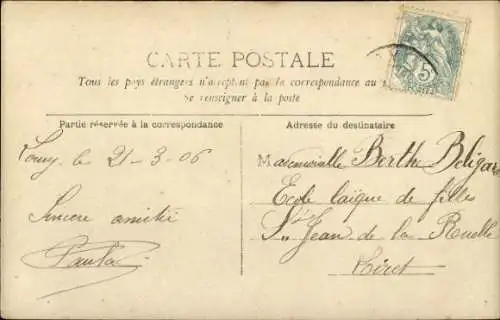 CARTE POSTALE
Tous les pays étrangers n'acceptent pas la correspondance au
Se renseigner à la poste
Partie réservée à la correspondance
Adresse du destinataire
le 21-3-06
Mademoiselle Berthe
Ecole laïque de filles
Sincère amitié
St Jean de la Ruelle
Loiret
5